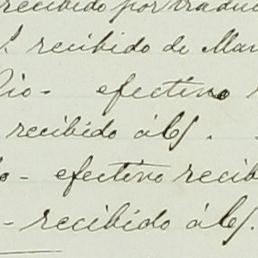 recibido por tradu
recibido de Mar
Rio - efectivo
recibido á C/.
- efectivo recib
- recibido á C/.